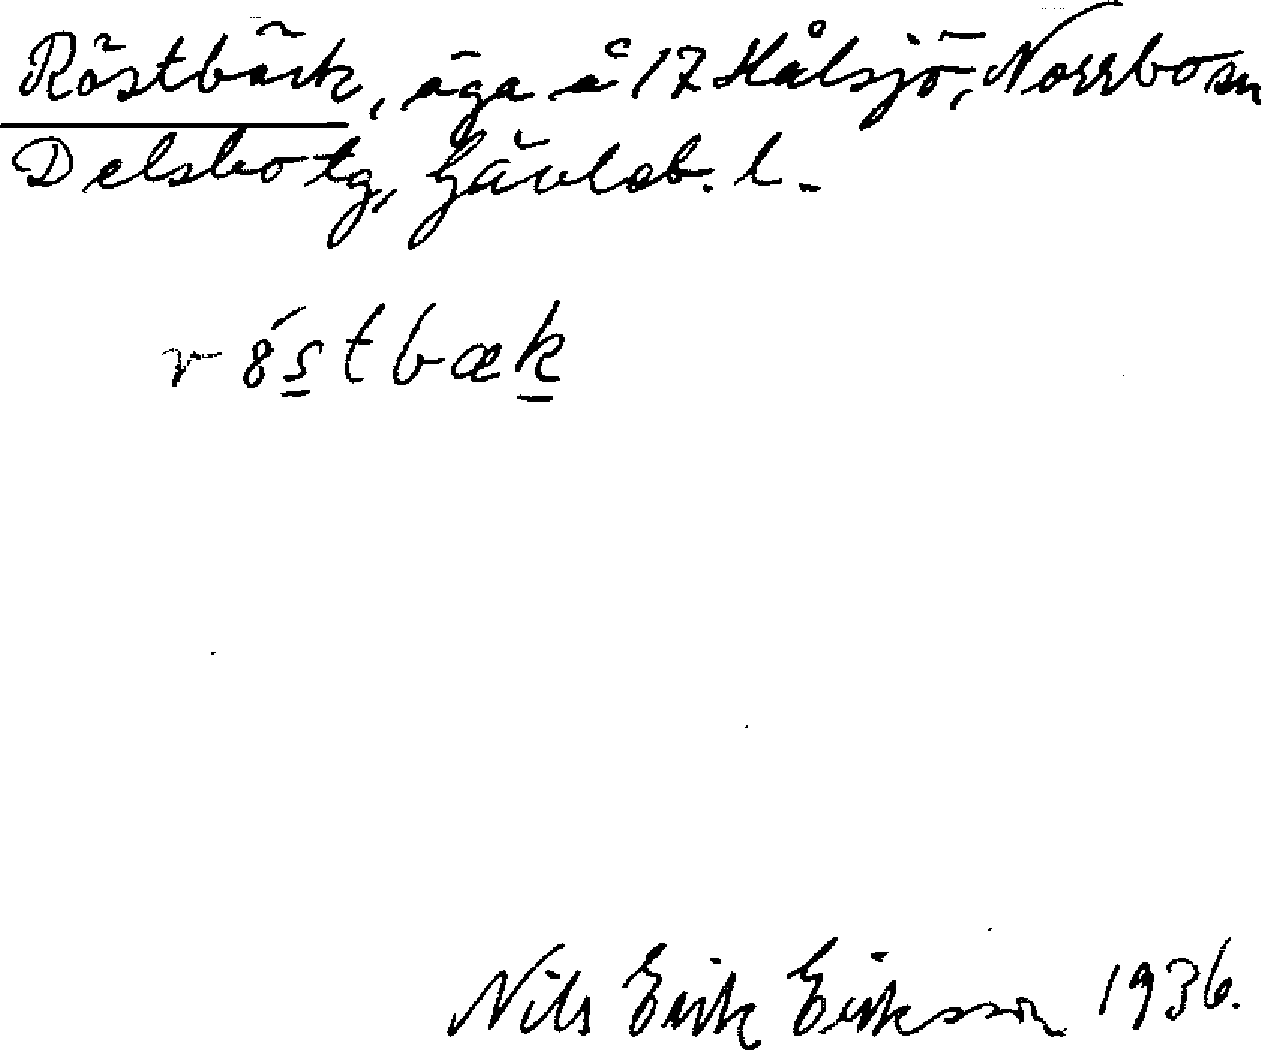 Röstbäck, äga å 17 Kålsjö, Norrbo sn
Delsbo tg, Gävleb. l.
r ȣ́s̲tbæk̲
Nils Erik Eriksson 1936.